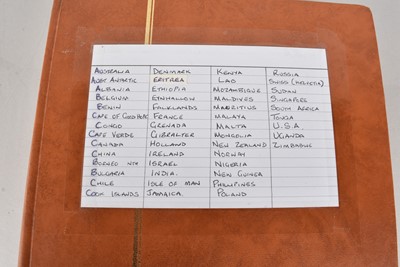 AUSTRALIA DENMARK KENYA RUSSIA
AUST ANTARTIC ERITREA LAO SWISS (HELVETIA)
ALBANIA ETHIOPIA MOZAMBIQUE SUDAN
BELGIUM ETNHALLON MALDIVES SINGAPORE
BENIN FALKLANDS MAURITIUS SOUTH AFRICA
CAPE OF GOOD HOPE FRANCE MALAYA TONGA
CONGO GRENADA MALTA U.S.A.
CAPE VERDE GIBRALTER MONGOLIA UGANDA
CANADA HOLLAND NEW ZEALAND ZIMBAGUE
CHINA IRELAND NORWAY
BORNEO NTH ISRAEL NIGERIA
BULGARIA INDIA. NEW GUINEA
CHILE ISLE OF MAN PHILIPINES
COOK ISLANDS JAMAICA. POLAND